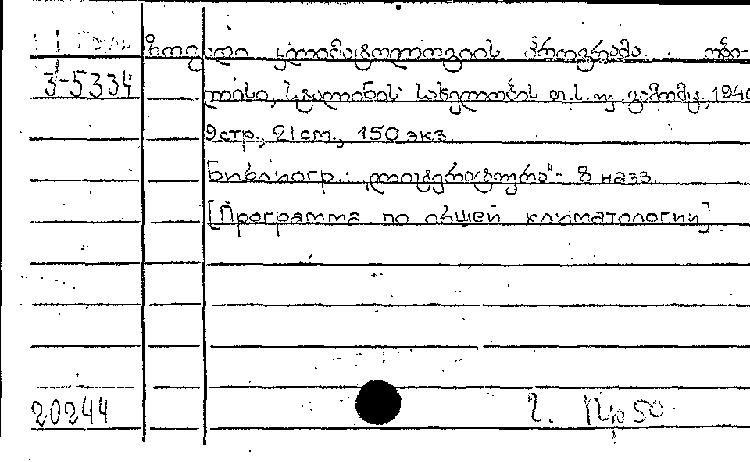 ზოგადი კლიმატოლოგიის პროგრამა. თბი-
3-5334
ლისი, სტალინის სახელობის თ.ს.უ. გამომც., 1940
9 стр., 21 см., 150 экз.
Библиогр.: „ლიტერატურა“- 8 назв.
[Программа по общей климатологии]
20244
2. 50